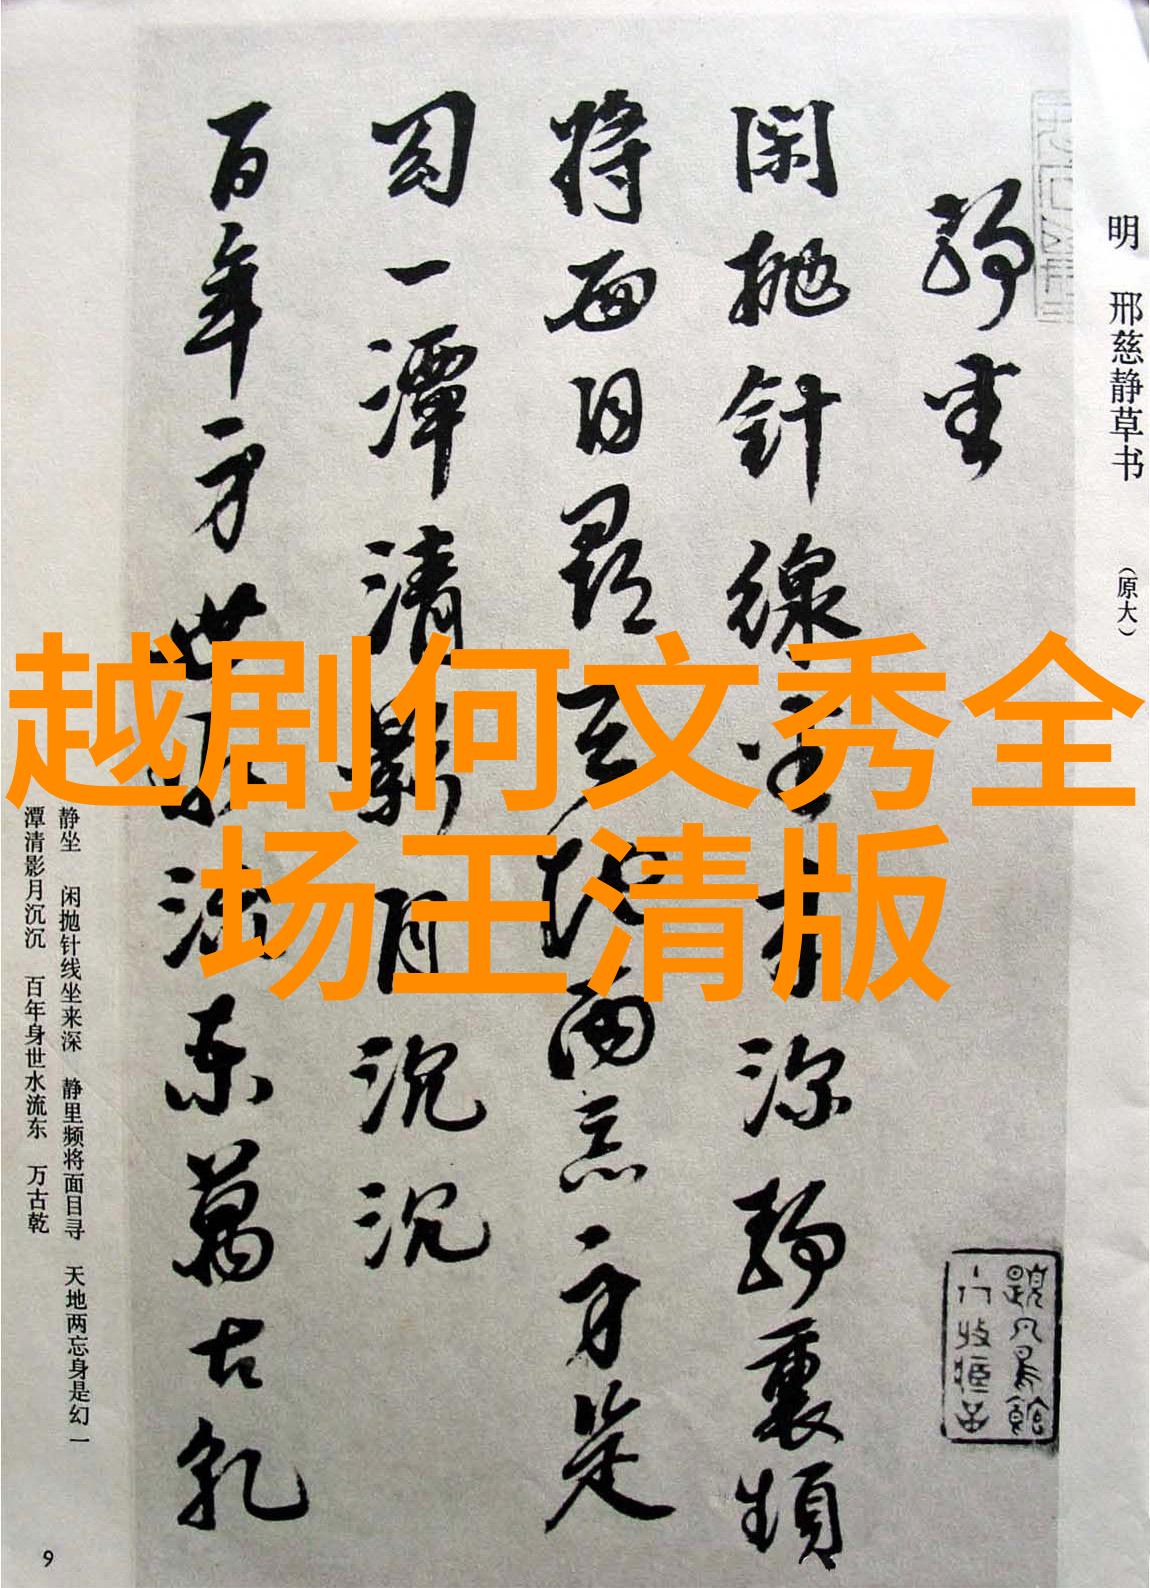 明 邢慈静草书 （原大）
静坐
閑抛針線坐来深静裏頻
將面目尋天地两忘身是
幻一潭清影月沉沉
百年身世水流东萬古乾
静坐 闲抛针线坐来深 静里频将面目寻 天地两忘身是幻 一
潭清影月沉沉 百年身世水流东 万古乾
9
越剧何文秀全
场王清版